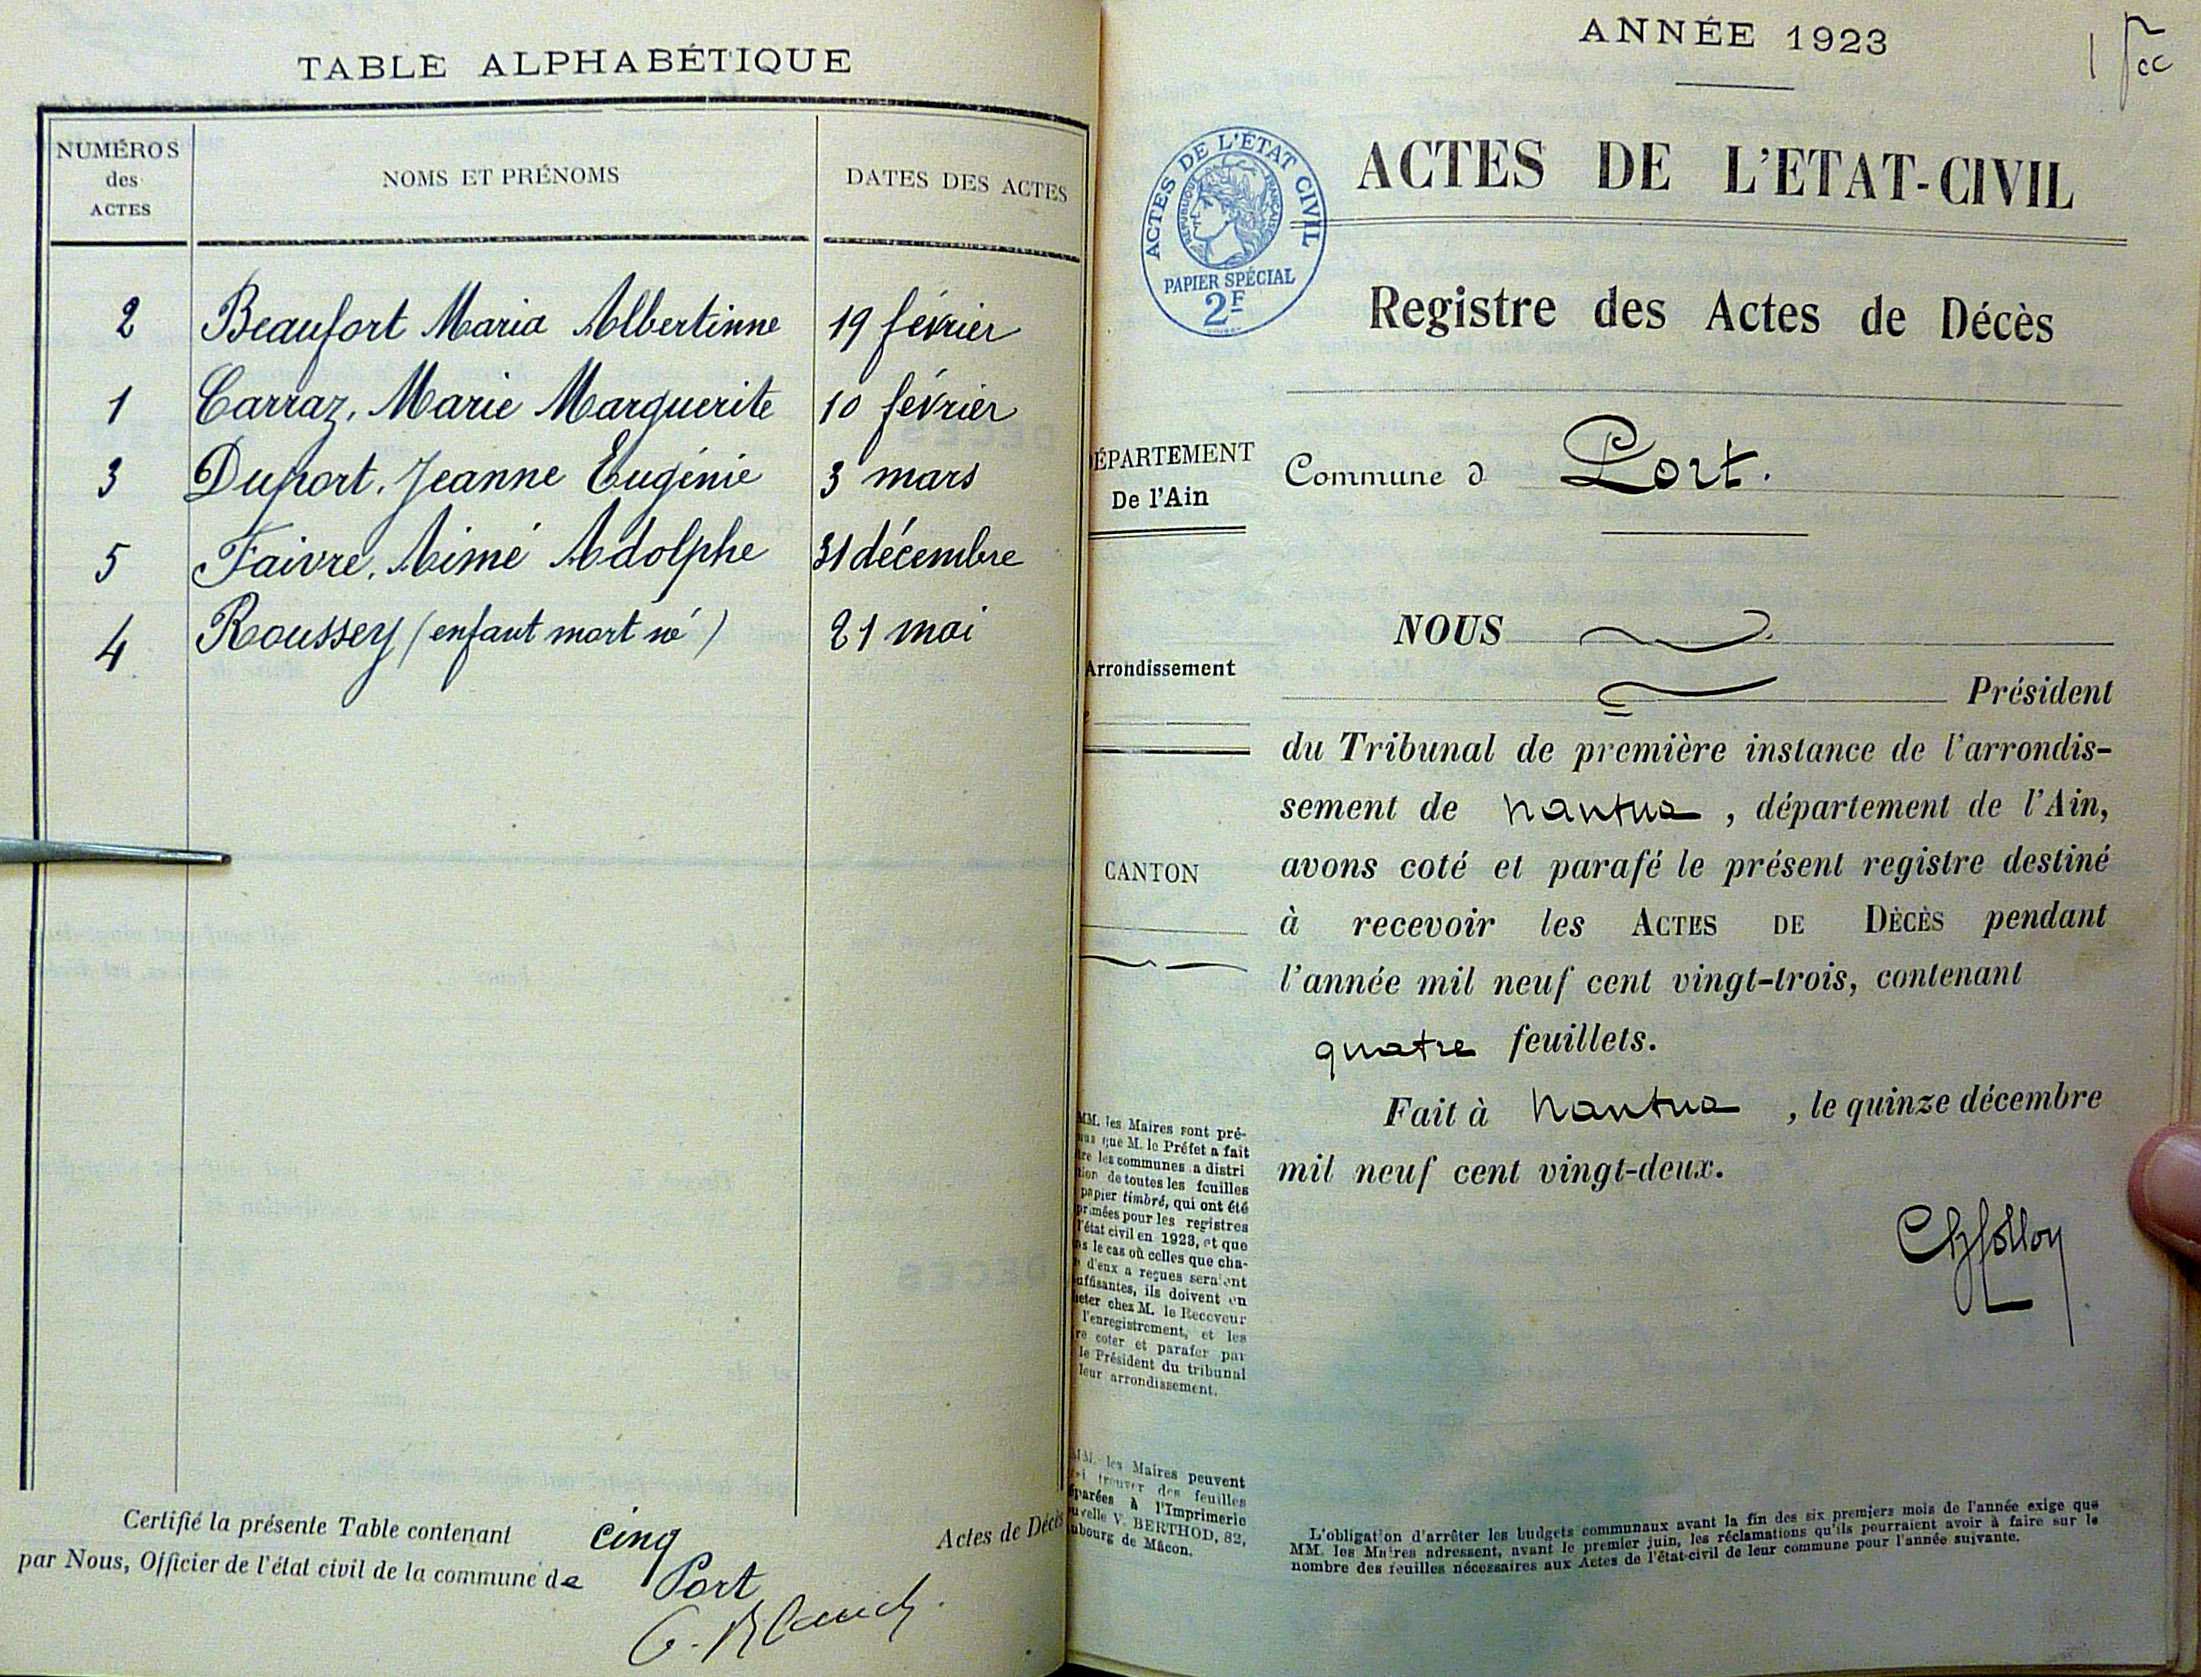 TABLE ALPHABÉTIQUE
NUMÉROS des ACTES
NOMS ET PRÉNOMS
DATES DES ACTES
2 Beaufort Maria Albertinne 19 février
1 Carraz, Marie Marguerite 10 février
3 Duport, Jeanne Eugénie 3 mars
5 Faivre, Aimé Adolphe 31 décembre
4 Roussey (enfant mort né) 21 mai
Certifié la présente Table contenant cinq Actes de Décès
par Nous, Officier de l'état civil de la commune de Port
ANNÉE 1923
1
ACTES DE L'ÉTAT CIVIL
RÉPUBLIQUE FRANÇAISE
PAPIER SPÉCIAL
2F
ACTES DE L'ETAT-CIVIL
Registre des Actes de Décès
ÉPARTEMENT
De l'Ain
Commune d Port.
Arrondissement
CANTON
NOUS
Président
du Tribunal de première instance de l'arrondis-
sement de Nantua, département de l'Ain,
avons coté et parafé le présent registre destiné
à recevoir les ACTES DE DÉCÈS pendant
l'année mil neuf cent vingt-trois, contenant
quatre feuillets.
Fait à Nantua, le quinze décembre
mil neuf cent vingt-deux.
MM. les Maires sont pré-
que M. le Préfet a fait
les communes a distri
de toutes les feuilles
papier timbré, qui ont été
primées pour les registres
l'état civil en 1923, et que
le cas où celles que cha-
d'eux a reçues seraient
uffisantes, ils doivent en
heter chez M. le Receveur
l'enregistrement, et les
re coter et parafer par
le Président du tribunal
leur arrondissement.
MM. les Maires peuvent
trouver des feuilles
éparées à l'Imprimerie
uvelle V. BERTHOD, 82,
ubourg de Mâcon.
L'obligation d'arrêter les budgets communaux avant la fin des six premiers mois de l'année exige que
MM. les Maires adressent, avant le premier juin, les réclamations qu'ils pourraient avoir à faire sur le
nombre des feuilles nécessaires aux Actes de l'état-civil de leur commune pour l'année suivante.